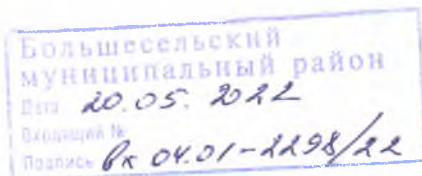 Большесельский
муниципальный район
Дата 20.05.2022
Входящий №
Подпись Вх 04.01-2298/22